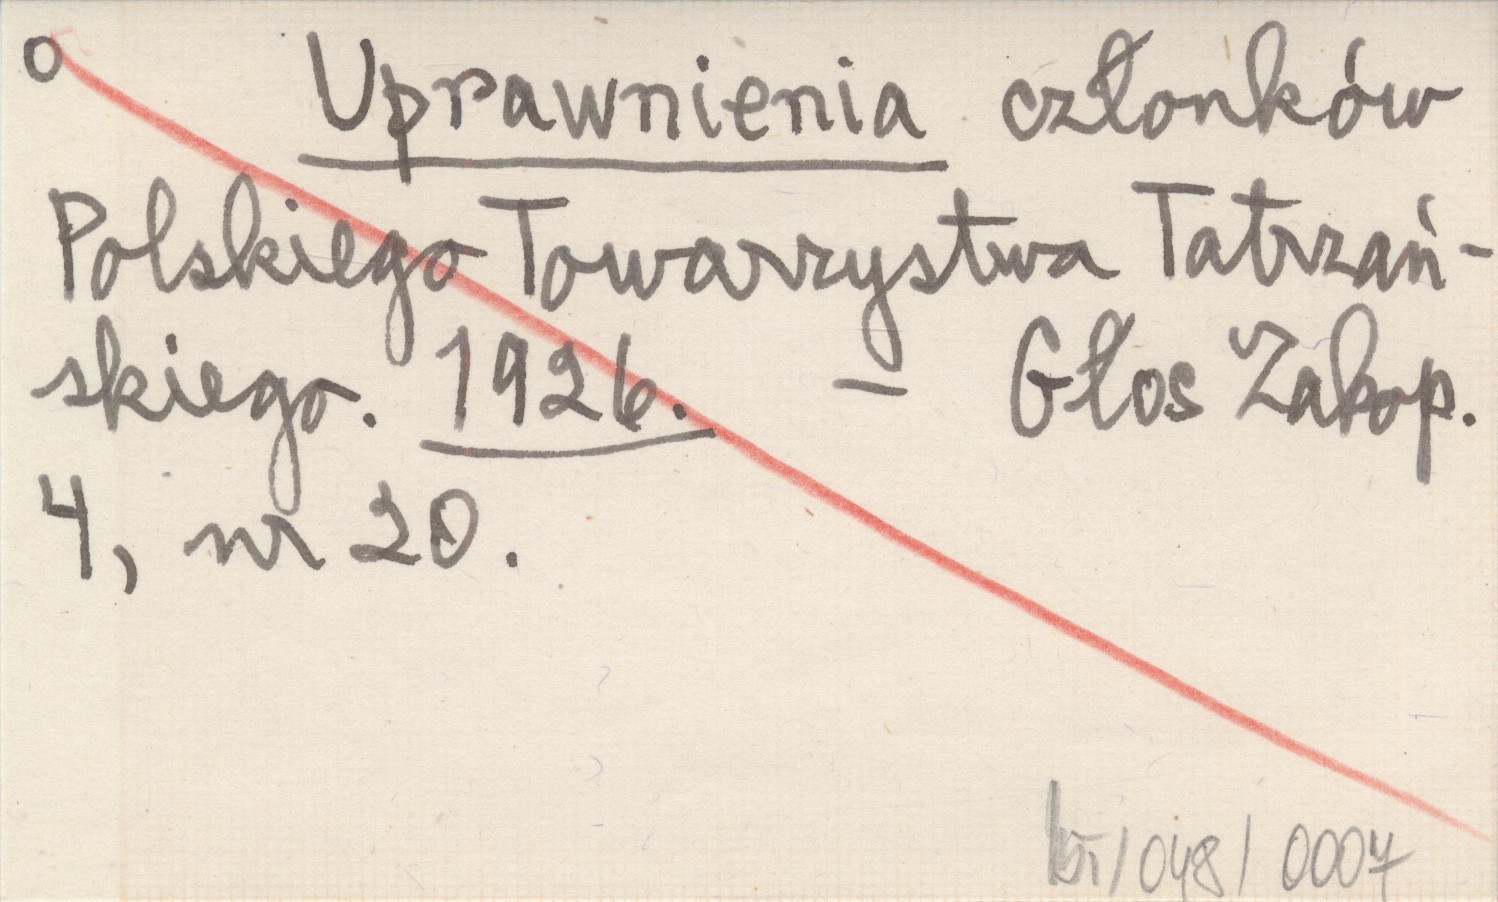 o Uprawnienia członków
Polskiego Towarzystwa Tatrzań-
skiego. 1926. – Głos Zakop.
4, nr 20.
/048/0007